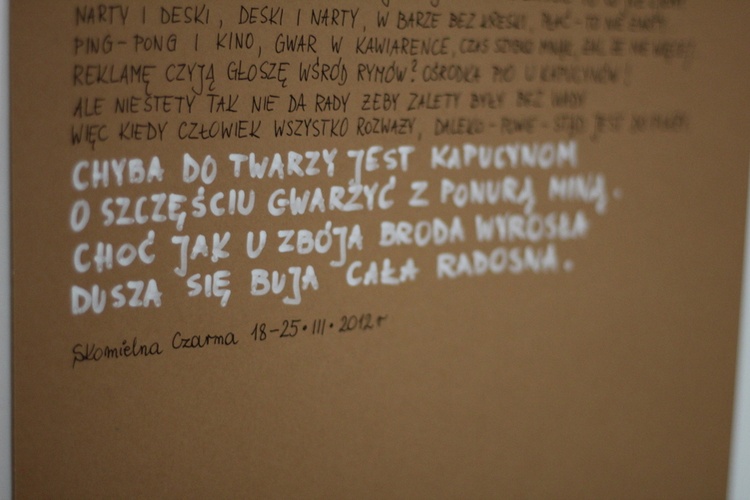 NARTY I DESKI, DESKI I NARTY, W BARZE BEZ KRESKI, PŁAĆ - TO NIE ŻARTY
PING-PONG I KINO, GWAR W KAWIARENCE, CZAS SZYBKO MINĄŁ, ŻAL, ŻE NIE WIĘCEJ
REKLAMĘ CZYJĄ GŁOSZĘ WŚRÓD RYMÓW? OŚRODKA U KAPUCYNÓW!
ALE NIESTETY TAK NIE DA RADY ŻEBY ZALETY BYŁY BEZ WADY
WIĘC KIEDY CZŁOWIEK WSZYSTKO ROZWAŻY, DALEKO - POWIE - STĄD JEST DO PLAŻY.
CHYBA DO TWARZY JEST KAPUCYNOM
O SZCZĘŚCIU GWARZYĆ Z PONURĄ MINĄ.
CHOĆ JAK U ZBÓJA BRODA WYROSŁA
DUSZA SIĘ BUJA CAŁA RADOSNA.
Skomielna Czarna 18-25.III.2012r